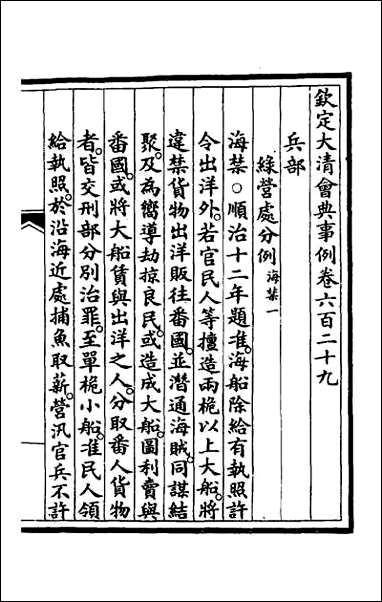 欽定大清會典事例卷六百二十九
兵部
綠營處分例海禁一
海禁○順治十二年題准海船除給有執照許
令出洋外。若官民人等擅造兩桅以上大船。將
違禁貨物出洋販往番國。並潛通海賊。同謀結
聚。及為嚮導劫掠良民。或造成大船。圖利賣與
番國。或將大船賃與出洋之人。分取番人貨物
者。皆交刑部分別治罪。至單桅小船。准民人領
給執照。於沿海近處捕魚取薪。營汛官兵不許